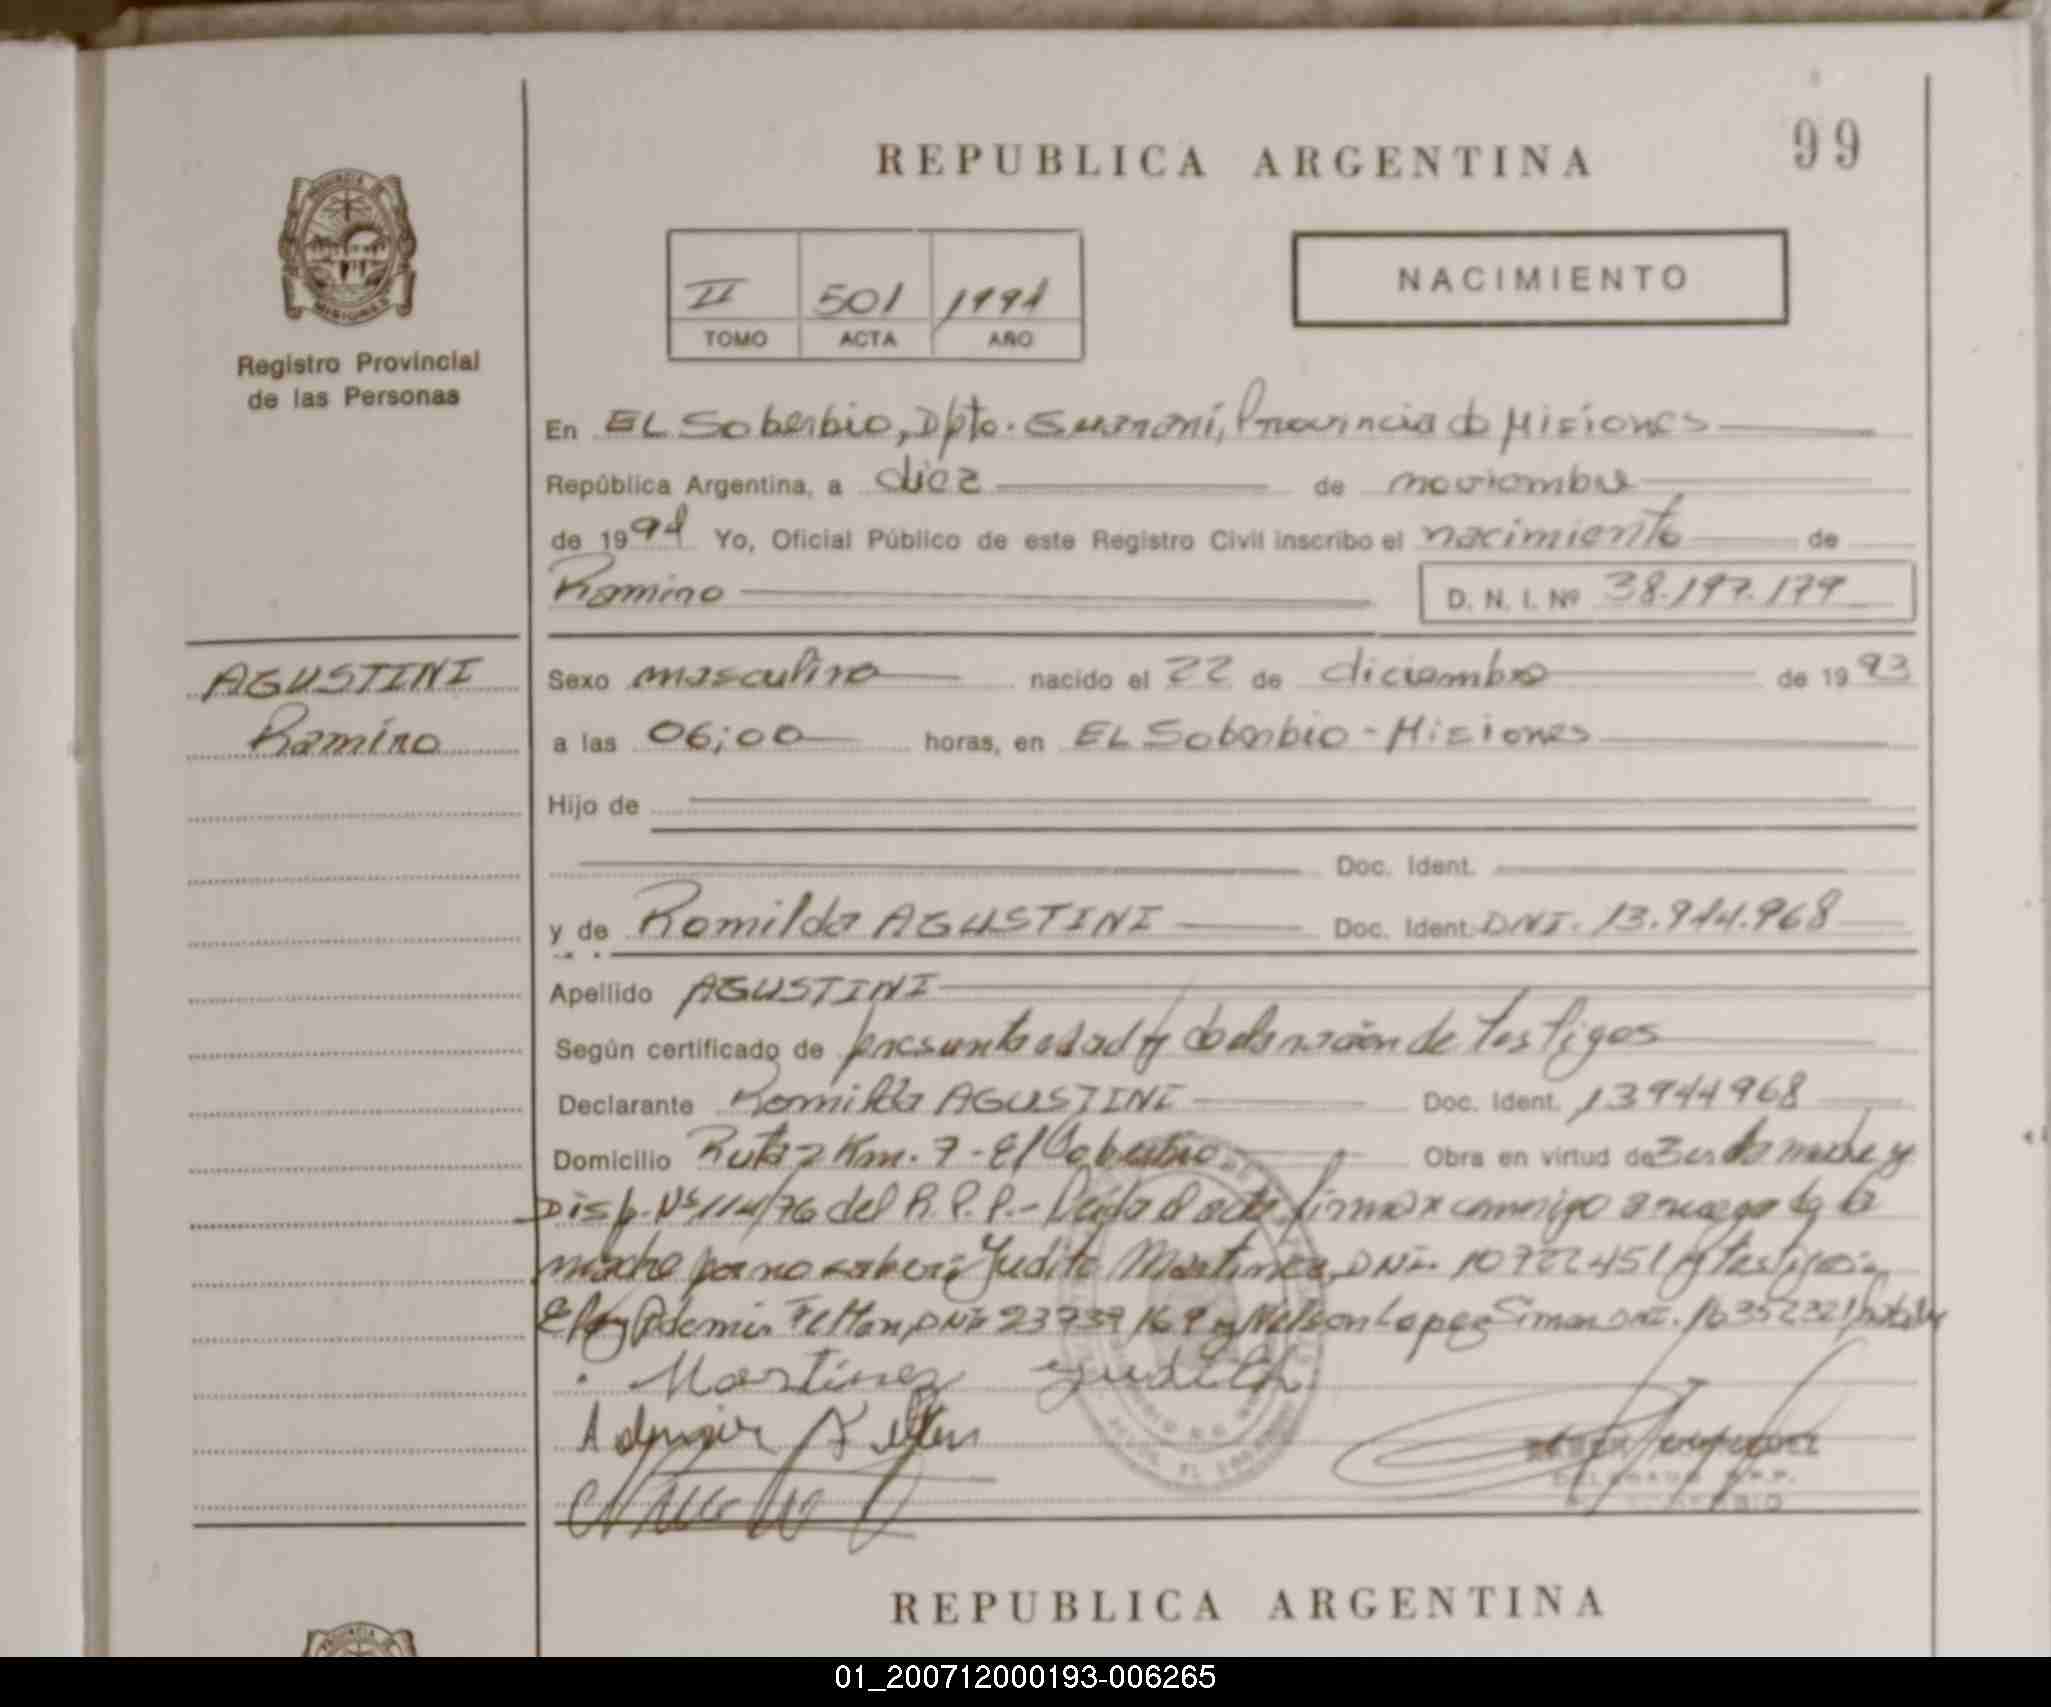 REPUBLICA ARGENTINA
99
PROVINCIA DE
MISIONES
Registro Provincial
de las Personas
II 501 1994
TOMO ACTA AÑO
NACIMIENTO
En EL Soberbio, Dpto. Guaraní, Provincia de Misiones
República Argentina, a diez de noviembre
de 1994 Yo, Oficial Público de este Registro Civil inscribo el nacimiento de
Ramiro D. N. I. Nº 38.197.179
AGUSTINI
Ramiro
Sexo masculino nacido el 22 de diciembre de 1993
a las 06;00 horas, en EL Soberbio - Misiones
Hijo de
Doc. Ident.
y de Romilda AGUSTINI Doc. Ident. DNI. 13.944.968
Apellido AGUSTINI
Según certificado de presunta edad y declaración de testigos
Declarante Romilda AGUSTINI Doc. Ident. 13944968
Domicilio Ruta 2 Km. 7 - El Soberbio Obra en virtud de ser la madre y
Disp. Nº 114/76 del R.P.P.- Leida el acta firma conmigo a ruego de la
madre por no saber: Yudith Martinez, DNI. 10722451 y testigos:
Eloy Ademir Felten, DNI 23739169 y Nelson Lopez Siman DNI. 16352321
Martinez Yudith
Ademir Felten
REPUBLICA ARGENTINA
01_200712000193-006265